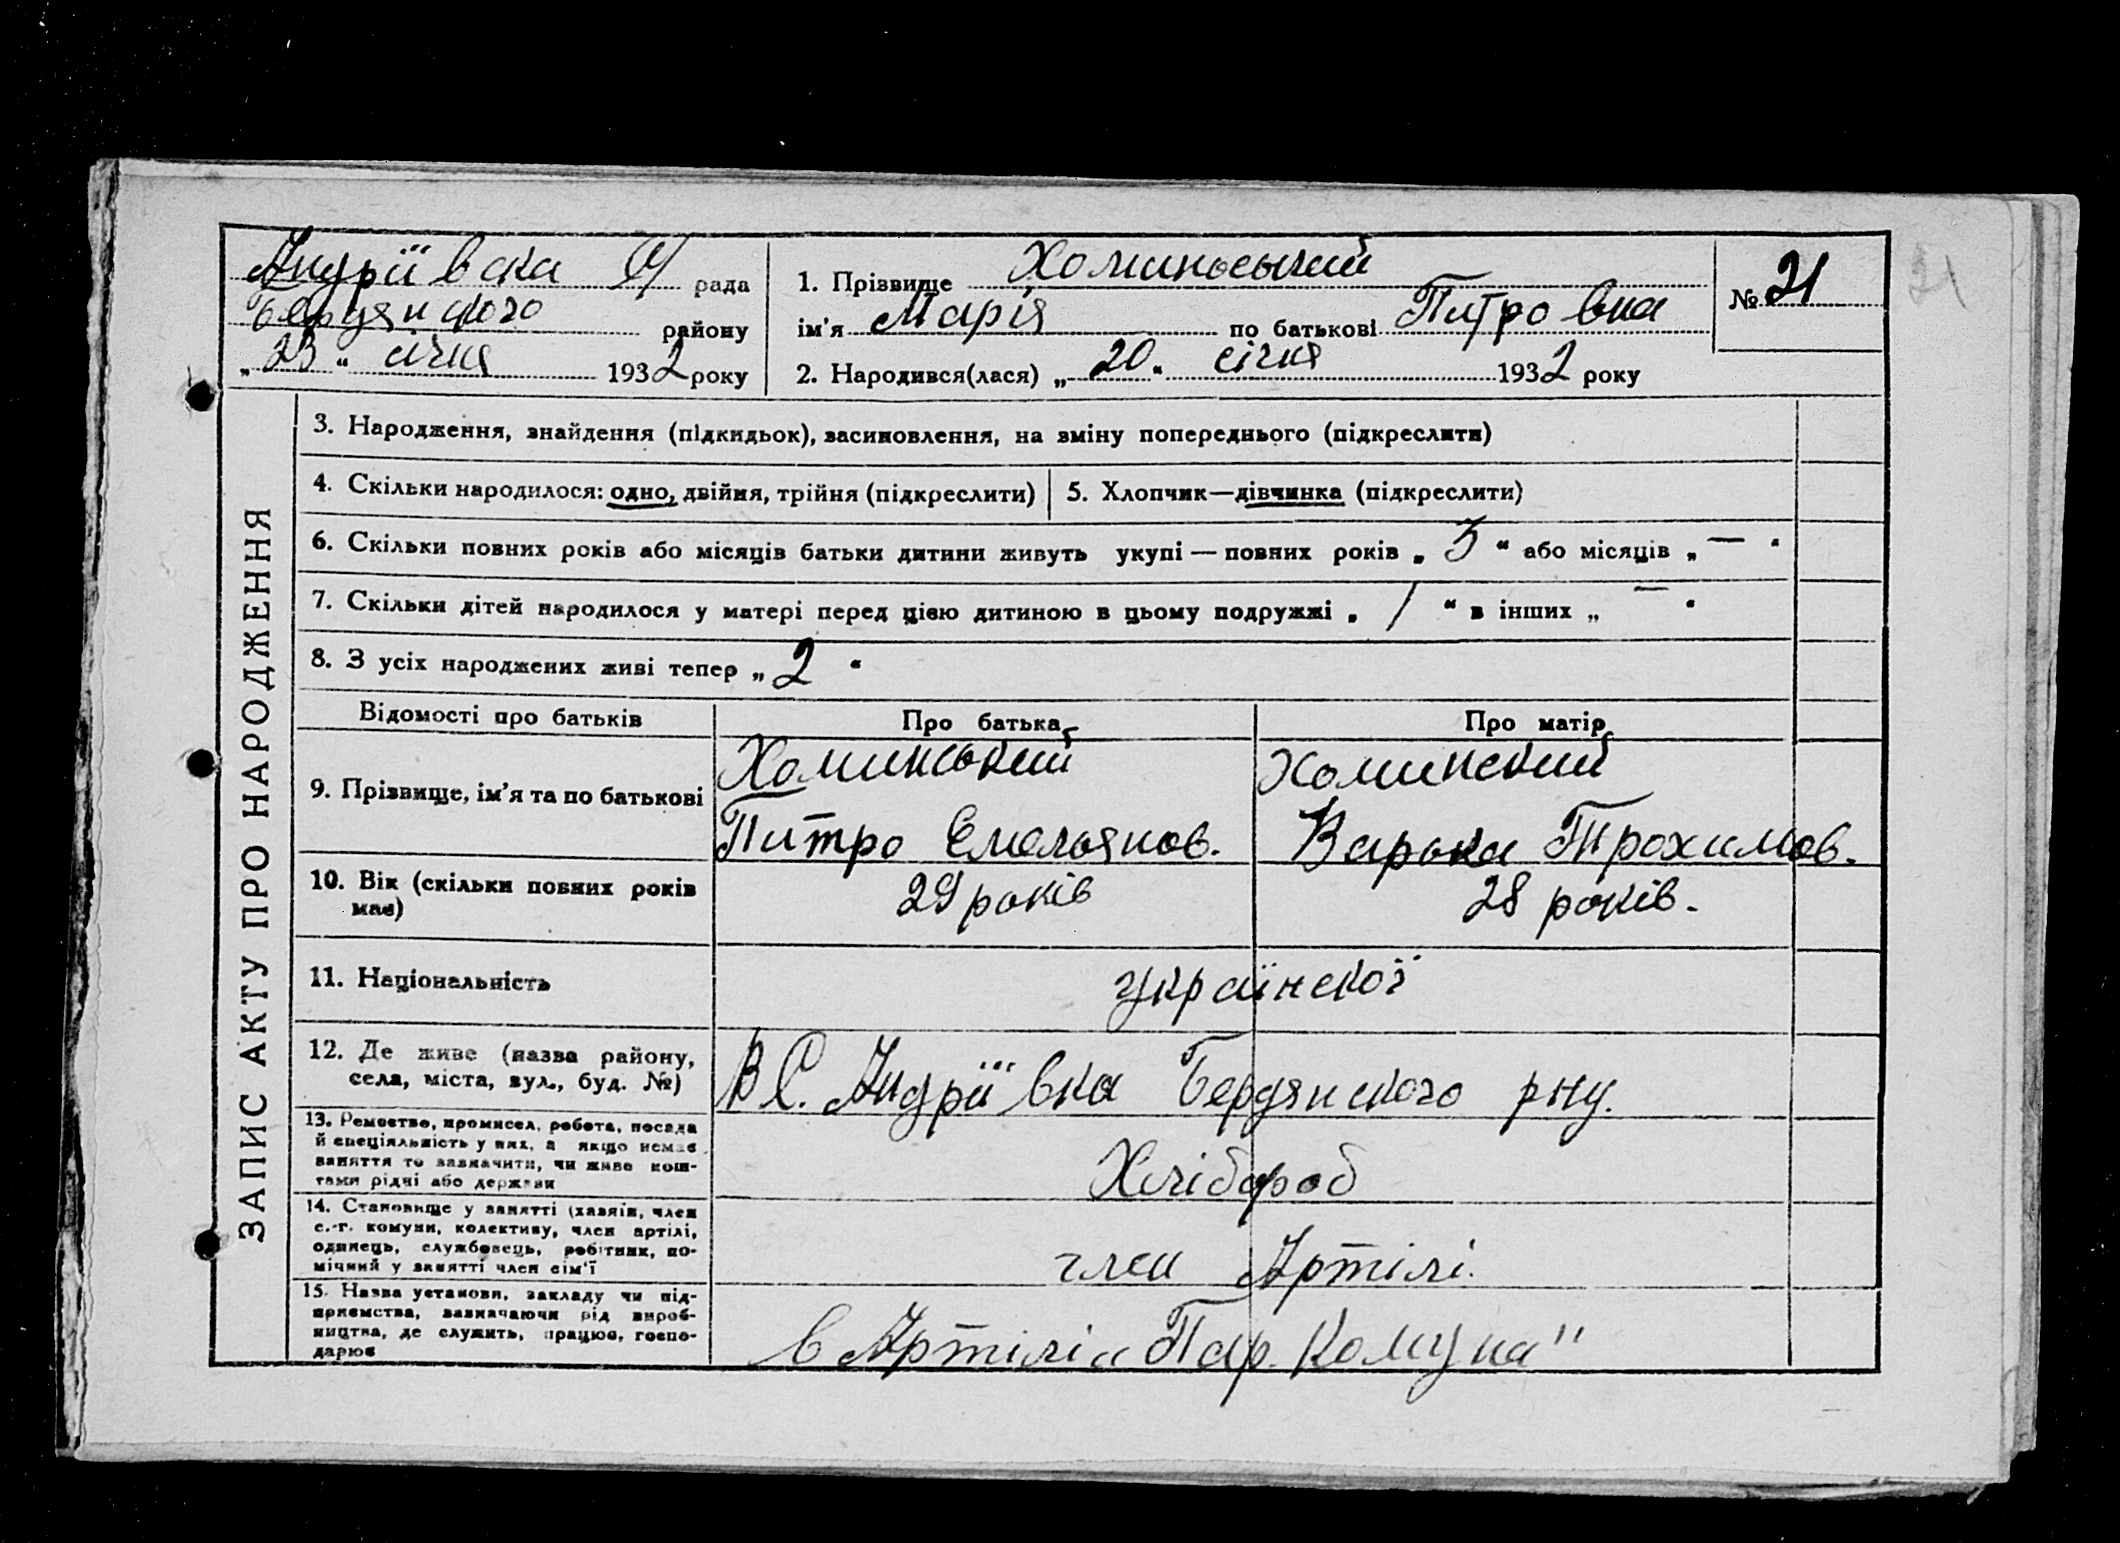 Андріївска С/ рада
Бердянского району
„23“ січня 1932 року
1. Прізвище Хоминський
ім'я Марія по батькові Питровна
2. Народився(лася) „20“ січня 1932 року
№ 21
21
ЗАПИС АКТУ ПРО НАРОДЖЕННЯ
3. Народження, знайдення (підкидьок), засиновлення, на зміну попереднього (підкреслити)
4. Скільки народилося: одно, двійня, трійня (підкреслити)
5. Хлопчик—дівчинка (підкреслити)
6. Скільки повних років або місяців батьки дитини живуть укупі — повних років „3“ або місяців „—“
7. Скільки дітей народилося у матері перед цією дитиною в цьому подружжі „1“ в інших „—“
8. З усіх народжених живі тепер „2“
Відомості про батьків Про батька Про матір
9. Прізвище, ім'я та по батькові
Хоминський
Питро Емельянов.
Хоминский
Варька Трохимов.
10. Вік (скільки повних років
має)
29 років
28 років.
11. Національність
українскої
12. Де живе (назва району,
села, міста, вул., буд. №)
В С. Андріївка Бердянского рну.
13. Ремество, промисел, робота, посада
й спеціяльність у них, а якщо немає
заняття то зазначити, чи живе кош-
тами рідні або держави
Хлібороб
14. Становище у занятті (хазяїн, член
с.-г. комуни, колективу, член артілі,
одинець, службовець, робітник, по-
мічний у занятті член сім'ї
член Артілі.
15. Назва установи, закладу чи під-
приємства, зазначаючи рід вироб-
ництва, де служить, працює, госпо-
дарює
в Артілі „Пар. Комуна"